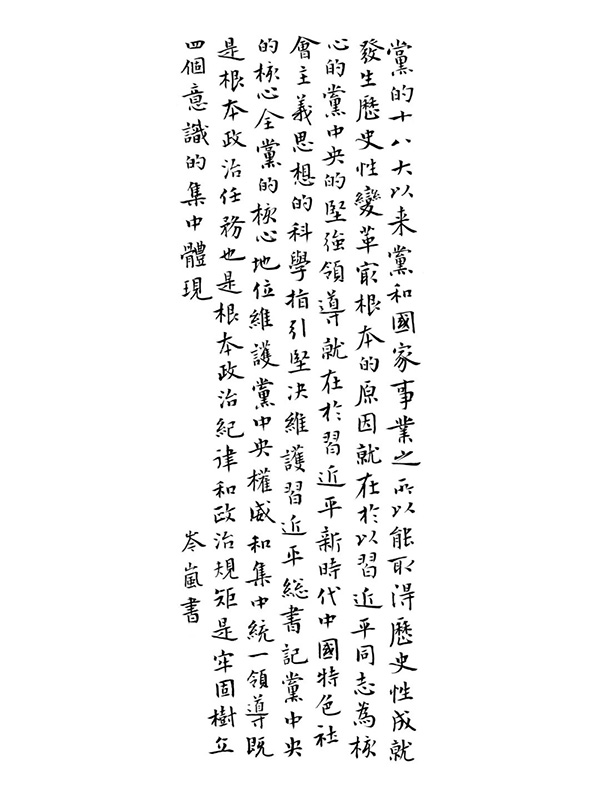 黨的十八大以来黨和國家事業之所以能取得歷史性成就
發生歷史性變革㝡根本的原因就在於以習近平同志為核
心的黨中央的堅強領導就在於習近平新時代中國特色社
會主義思想的科學指引堅决維護習近平總書記黨中央
的核心全黨的核心地位維護黨中央權威和集中統一領導既
是根本政治任務也是根本政治紀律和政治規矩是牢固樹立
四個意識的集中體現
岑嵐書